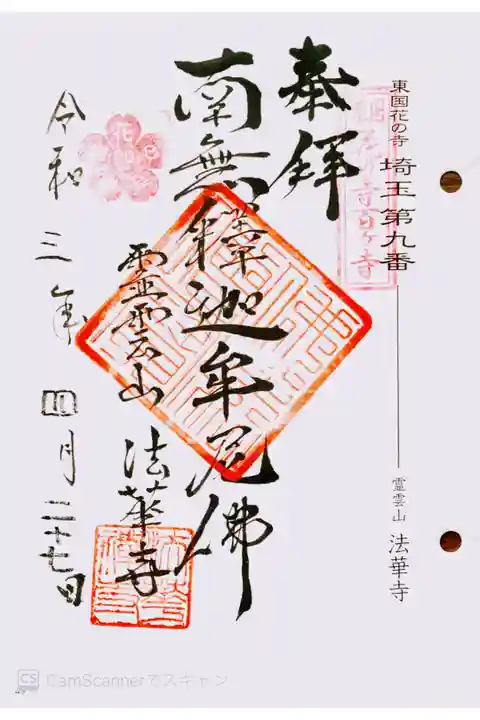 東国花の寺 埼玉第九番
霊雲山 法華寺
奉拝
南無釋迦牟尼佛
靈雲山
法華寺
令和三年四月二十七日
CS CamScannerでスキャン